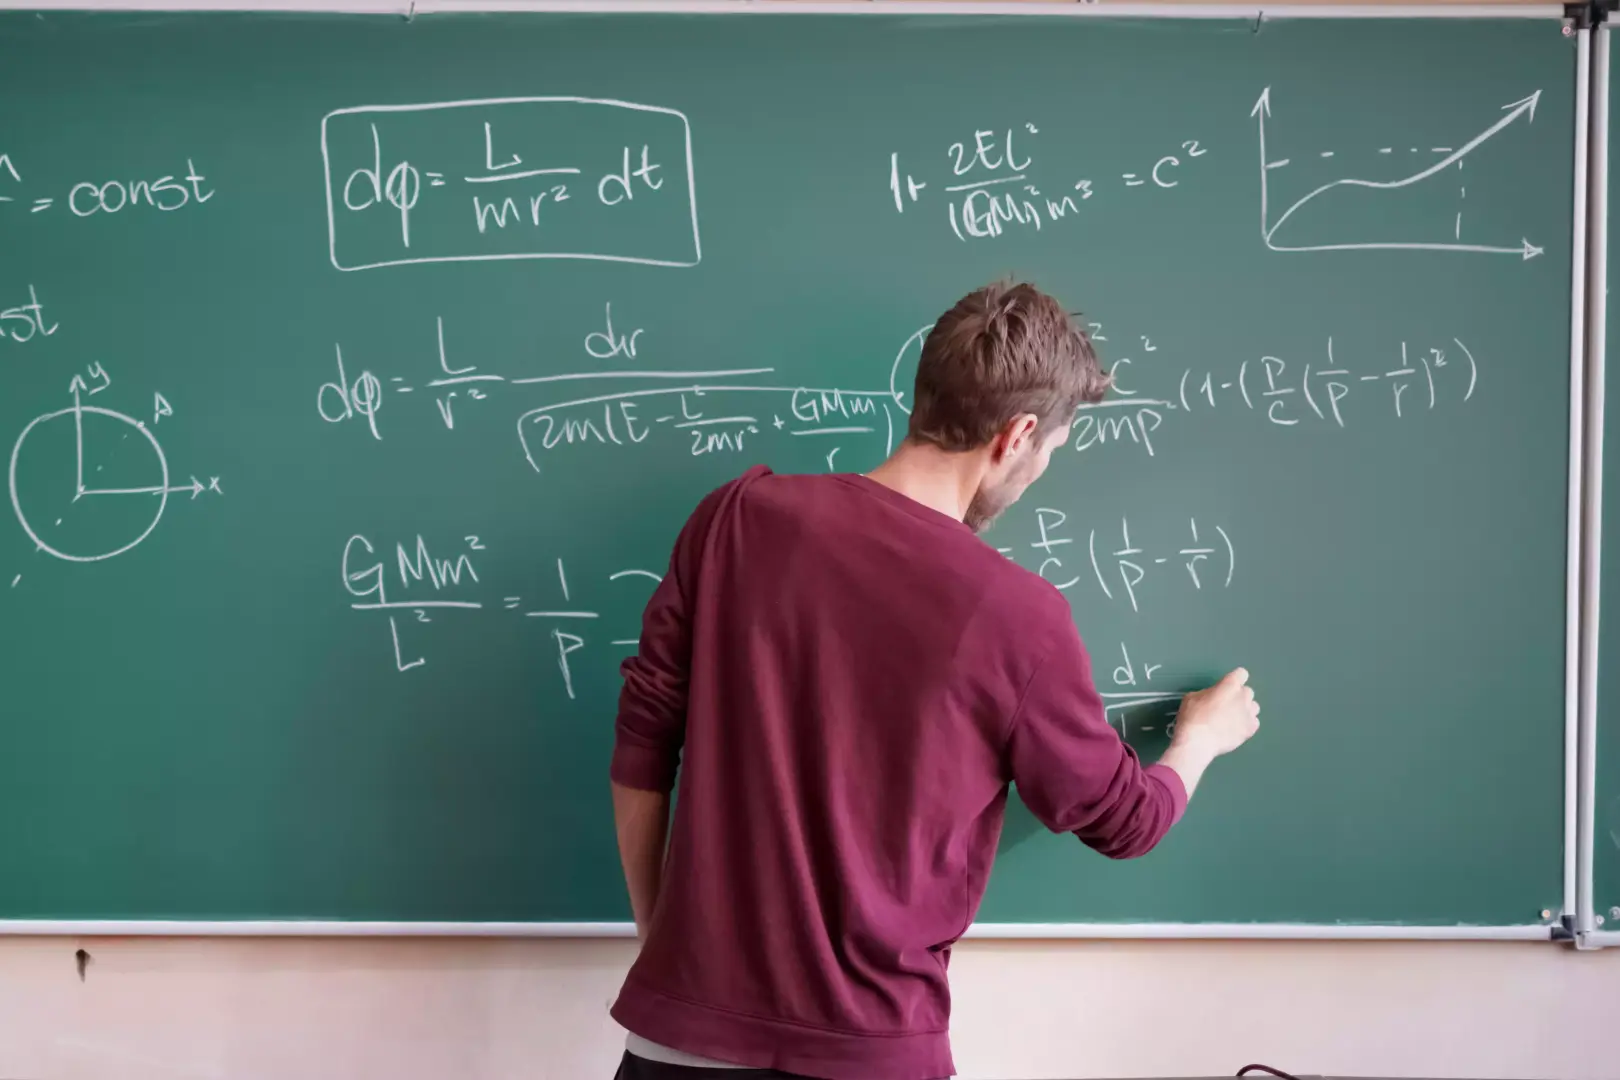 = const
dφ = L/mr² dt
1+ 2EL²/(GM)²m³ = c²
st
dφ = L/r² dr/√2m(E - L²/2mr² + GMm/r)
² c²/2mp² (1-(p/c(1/p - 1/r)²)
y
A
x
GMm²/L² = 1/p
= p/c (1/p - 1/r)
dr/√1 -